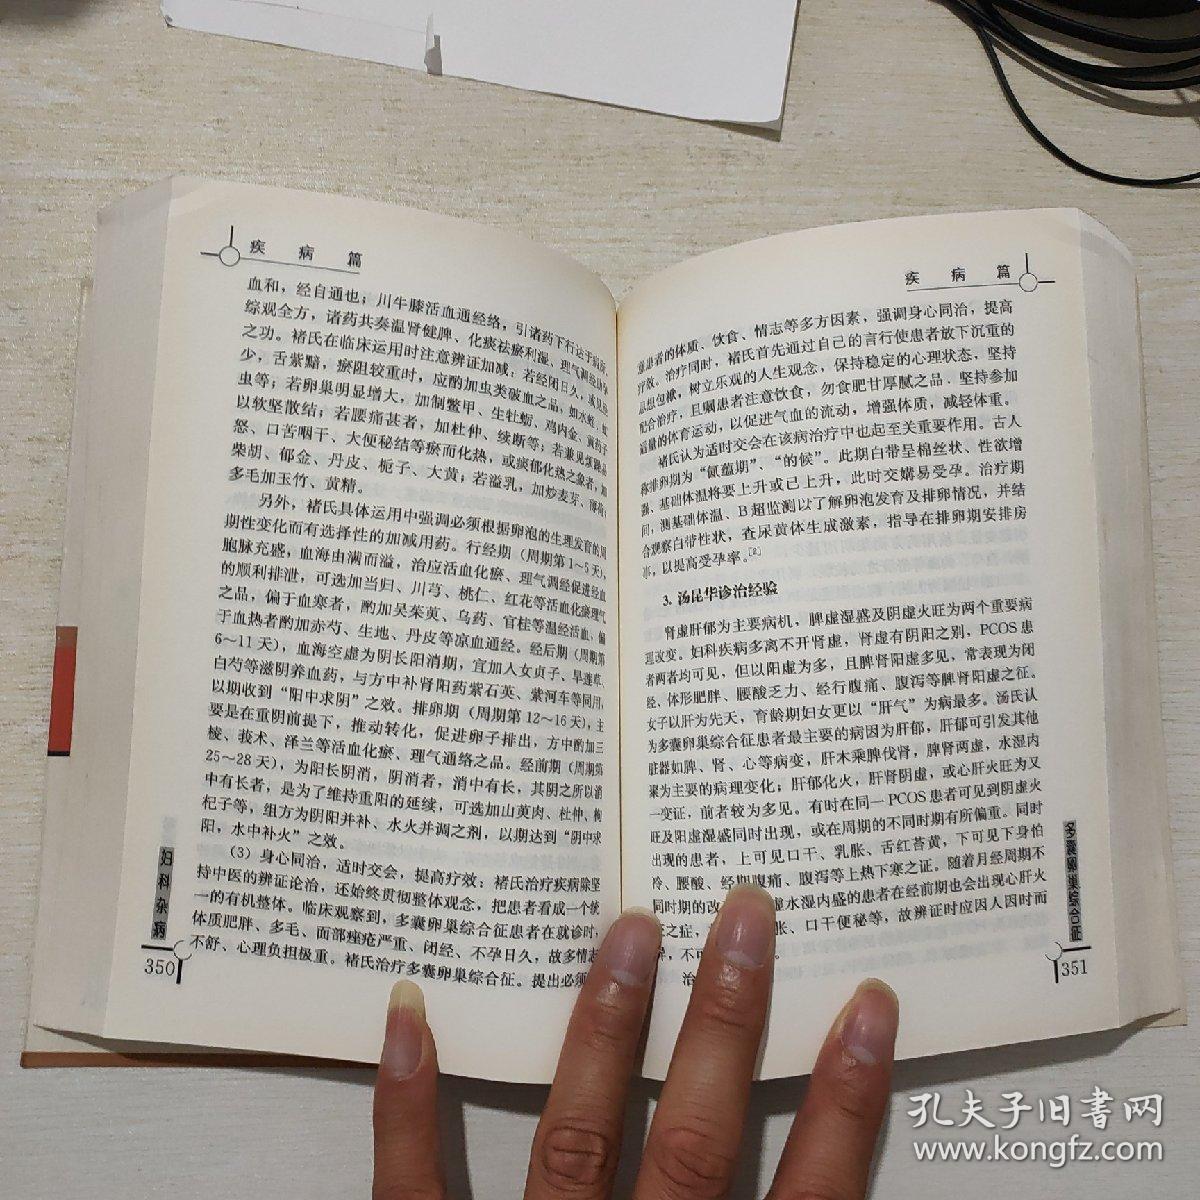 疾 病 篇
血和，经自通也；川牛膝活血通经络，引诸药下行达于病所。
综观全方，诸药共奏温肾健脾、化痰祛瘀利湿、理气调经助孕
之功。褚氏在临床运用时注意辨证加减：若经闭日久，或见经
少，舌紫黯，瘀阻较重时，应酌加虫类破血之品，如水蛭、虻
虫等；若卵巢明显增大，加制鳖甲、生牡蛎、鸡内金、黄药子
以软坚散结；若腰痛甚者，加杜仲、续断等；若兼见烦躁易
怒、口苦咽干、大便秘结等瘀而化热，或痰郁化热之象者，加
柴胡、郁金、丹皮、栀子、大黄；若溢乳，加炒麦芽、薄荷；
多毛加玉竹、黄精。
另外，褚氏具体运用中强调必须根据卵泡的生理发育的周
期性变化而有选择性的加减用药。行经期（周期第1～5天），
胞脉充盛，血海由满而溢，治应活血化瘀、理气调经促进经血
的顺利排泄，可选加当归、川芎、桃仁、红花等活血化瘀理气
之品，偏于血寒者，酌加吴茱萸、乌药、官桂等温经活血，偏
于血热者酌加赤芍、生地、丹皮等凉血通经。经后期（周期第
6～11天），血海空虚为阴长阳消期，宜加入女贞子、旱莲草、
白芍等滋阴养血药，与方中补肾阳药紫石英、紫河车等同用，
以期收到“阳中求阴”之效。排卵期（周期第12～16天），主
要是在重阴前提下，推动转化，促进卵子排出，方中酌加三
棱、莪术、泽兰等活血化瘀、理气通络之品。经前期（周期第
25～28天），为阳长阴消，阴消者，消中有长，其阴之所以消
中有长者，是为了维持重阳的延续，可选加山萸肉、杜仲、枸
杞子等，组方为阴阳并补、水火并调之剂，以期达到“阴中求
阳，水中补火”之效。
（3）身心同治，适时交会，提高疗效：褚氏治疗疾病除坚
持中医的辨证论治，还始终贯彻整体观念，把患者看成一个统
一的有机整体。临床观察到，多囊卵巢综合征患者在就诊时，
体质肥胖、多毛、面部痤疮严重、闭经、不孕日久，故多情志
不舒、心理负担极重。褚氏治疗多囊卵巢综合征。提出必须
妇科杂病
350
疾 病 篇
患者的体质、饮食、情志等多方因素，强调身心同治，提高
疗效。治疗同时，褚氏首先通过自己的言行使患者放下沉重的
思想包袱，树立乐观的人生观念，保持稳定的心理状态，坚持
配合治疗，且嘱患者注意饮食，勿食肥甘厚腻之品．坚持参加
适量的体育运动，以促进气血的流动，增强体质，减轻体重。
褚氏认为适时交会在该病治疗中也起至关重要作用。古人
称排卵期为“氤蕴期”、“的候”。此期白带呈棉丝状、性欲增
强、基础体温将要上升或已上升，此时交媾易受孕。治疗期
间，测基础体温、B超监测以了解卵泡发育及排卵情况，并结
合观察白带性状，查尿黄体生成激素，指导在排卵期安排房
事，以提高受孕率。[2]
3. 汤昆华诊治经验
肾虚肝郁为主要病机，脾虚湿盛及阴虚火旺为两个重要病
理改变。妇科疾病多离不开肾虚，肾虚有阴阳之别，PCOS患
者两者均可见，但以阳虚为多，且脾肾阳虚多见，常表现为闭
经、体形肥胖、腰酸乏力、经行腹痛、腹泻等脾肾阳虚之征。
女子以肝为先天，育龄期妇女更以“肝气”为病最多。汤氏认
为多囊卵巢综合征患者最主要的病因为肝郁，肝郁可引发其他
脏器如脾、肾、心等病变，肝木乘脾伐肾，脾肾两虚，水湿内
聚为主要的病理变化；肝郁化火，肝肾阴虚，或心肝火旺为又
一变证，前者较为多见。有时在同一PCOS患者可见到阴虚火
旺及阳虚湿盛同时出现，或在周期的不同时期有所偏重。同时
出现的患者，上可见口干、乳胀、舌红苔黄，下可见下身怕
冷、腰酸、经期腹痛、腹泻等上热下寒之证。随着月经周期不
同时期的改 虚水湿内盛的患者在经前期也会出现心肝火
旺之症， 胀、口干便秘等，故辨证时应因人因时而
异，不可 。
治
多囊卵巢综合征
351
孔夫子旧书网
www.kongfz.com